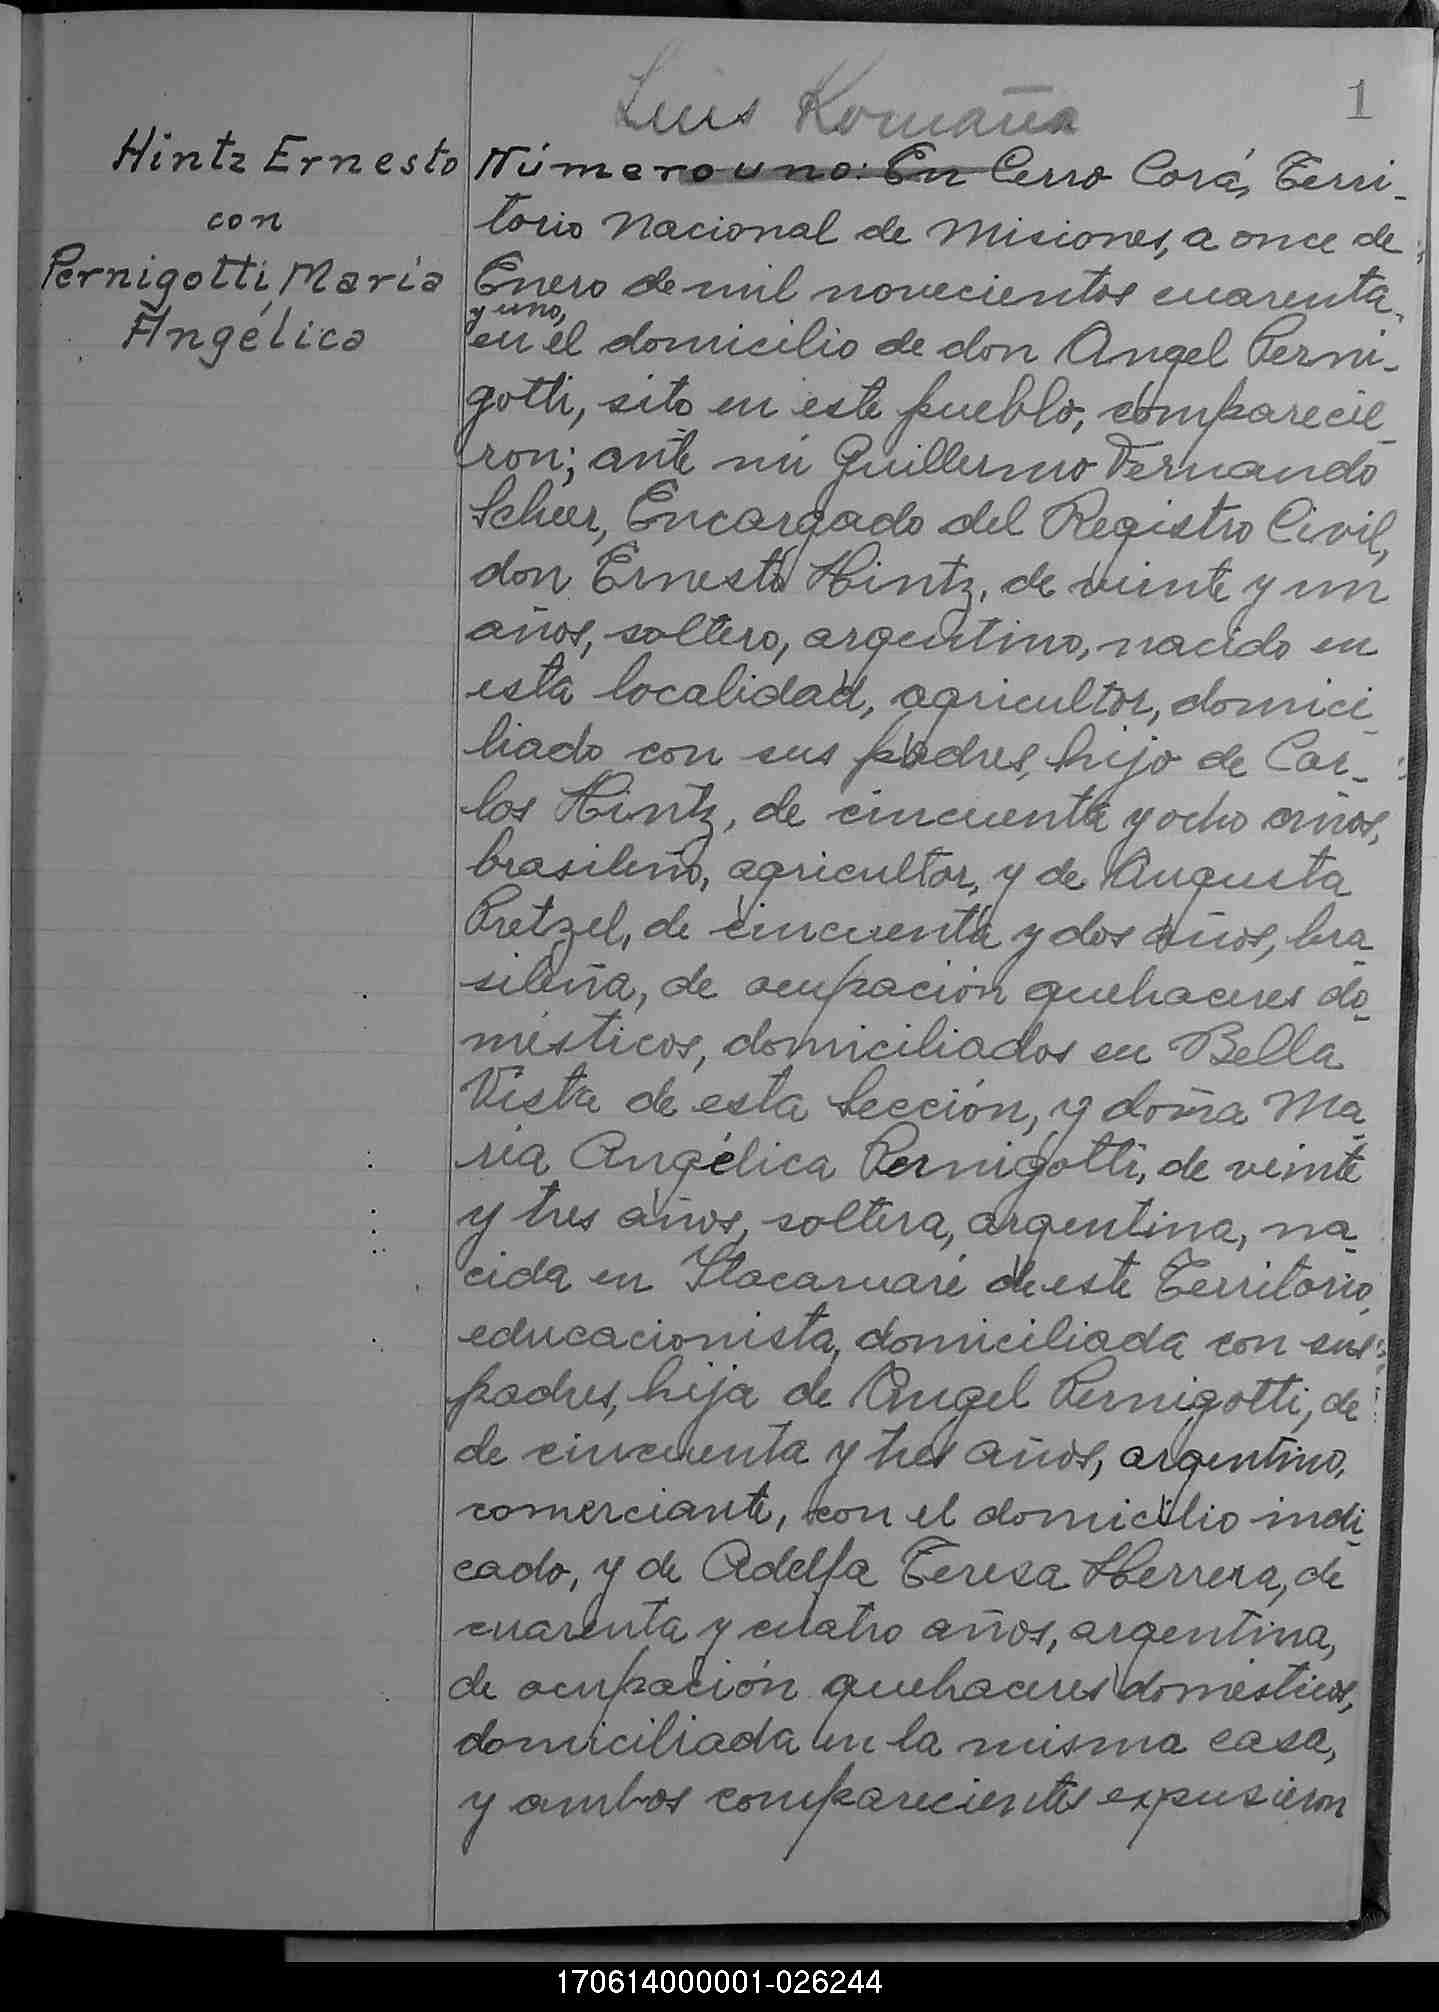 Luis Romaña
1
Hintz Ernesto
con
Pernigotti, María
Angélica
Número uno: En Cerro Corá, Terri-
torio Nacional de Misiones, a once de
Enero de mil novecientos cuarenta
y uno,
en el domicilio de don Angel Perni-
gotti, sito en este pueblo, comparecie-
ron; ante mi Guillermo Fernando
Scheer, Encargado del Registro Civil,
don Ernesto Hintz, de veinte y un
años, soltero, argentino, nacido en
esta localidad, agricultor, domici-
liado con sus padres, hijo de Car-
los Hintz, de cincuenta y ocho años,
brasileño, agricultor, y de Augusta
Pretzel, de cincuenta y dos años, bra-
sileña, de ocupación quehaceres do-
mésticos, domiciliados en Bella
Vista de esta Sección, y doña Ma-
ría Angélica Pernigotti, de veinte
y tres años, soltera, argentina, na-
cida en Itacaruaré de este Territorio,
educacionista, domiciliada con sus
padres, hija de Angel Pernigotti, de
de cincuenta y tres años, argentino,
comerciante, con el domicilio indi-
cado, y de Adelfa Teresa Herrera, de
cuarenta y cuatro años, argentina,
de ocupación quehaceres domésticos,
domiciliada en la misma casa,
y ambos comparecientes expusieron
170614000001-026244